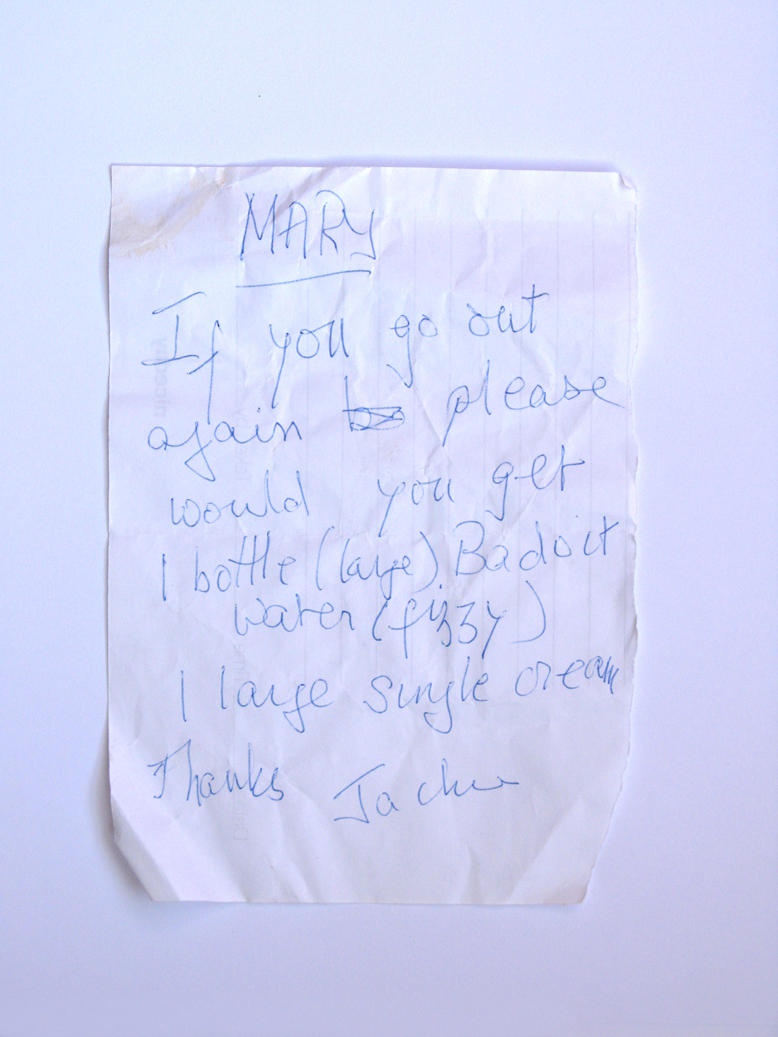 MARY
If you go out
again please
would you get
1 bottle (large) Badoit
water (fizzy)
1 large single cream
Thanks Jackie